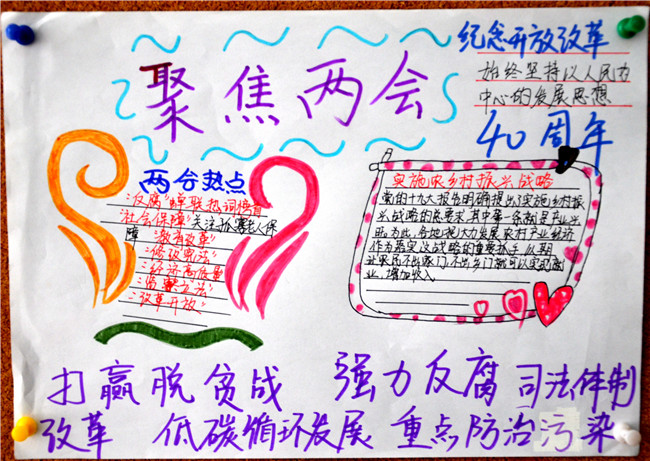 聚焦两会
纪念开放改革
始终坚持以人民为
中心的发展思想
40周年
两会热点
反腐"蝉联热词榜首
"社会保障"关注孤寡老人保
障 "教育改革"
"修改宪法"
"经济高质量"
"监察立法"
"改革开放"
实施农乡村振兴战略
党的十九大报告明确提出了实施乡村振
兴战略的总要求,其中第一条就是产业兴
旺.为此,各地把大力发展农村产业经济
作为落实这战略的重要抓手,从而
业农民不出家门,不出乡门就可以实现就
业,增加收入
打赢脱贫战 强力反腐 司法体制
改革 低碳循环发展 重点防治污染